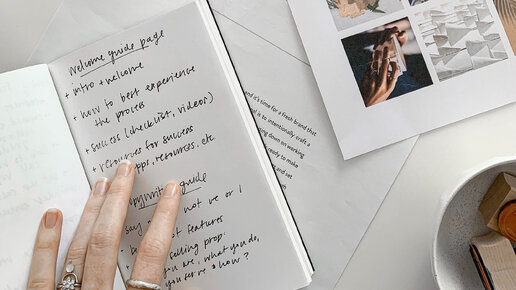 Welcome guide page
+ intro + welcome
+ how to best experience
the process
+ success (checklist, videos)
+ resources for success
apps, resources, etc.
guide
say not we or I
features
selling prop:
you are, what you do,
you serve & how?
and it's time for a fresh brand that
al is to intentionally craft a
king down on working
ready to make
and set